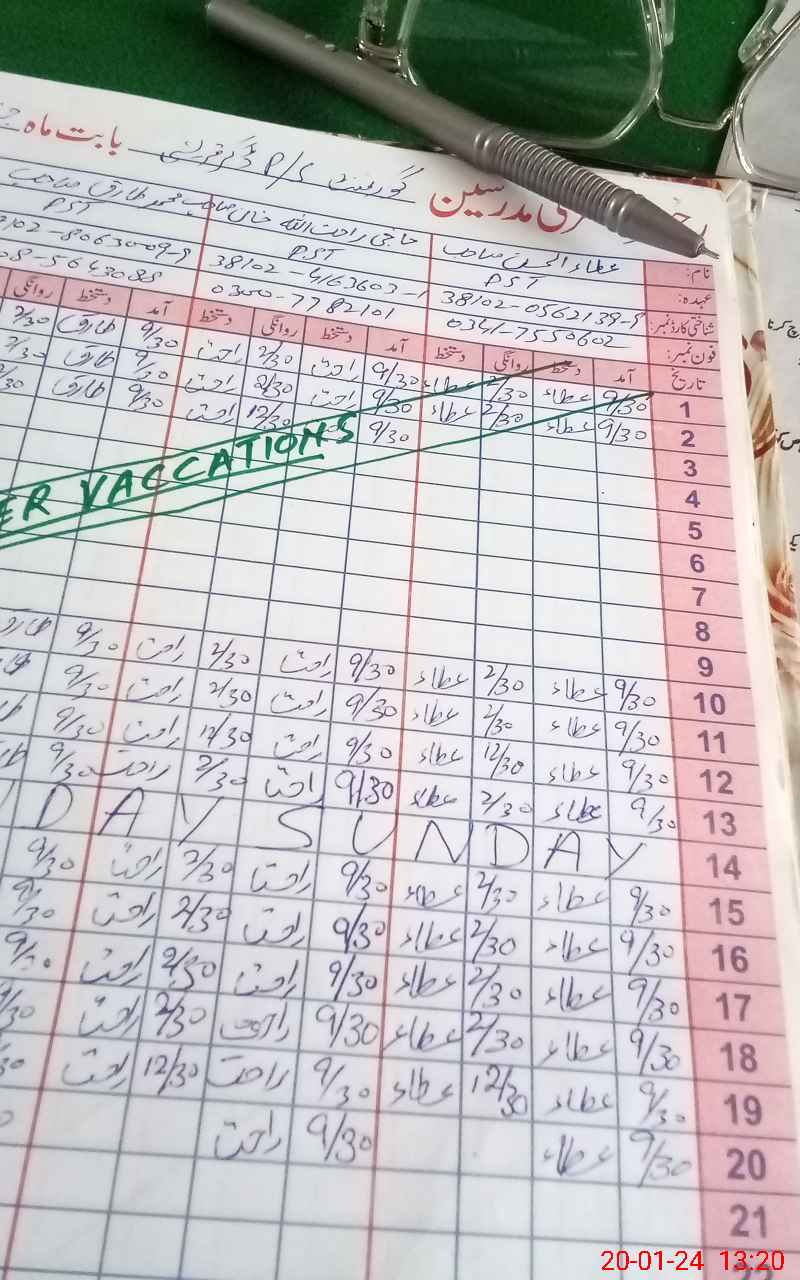 گورنمنٹ P/S
بابت ماہ
عطاء الحسن صاحب
حاجی راحت اللہ خان صاحب
محمد طارق صاحب
نام:
PST
PST
PST
عہدہ:
38102-0562139-9
38102-4163603-1
شناختی کارڈ نمبر:
0341-7550602
0300-7782101
08-5643088
فون نمبر:
تاریخ آمد دستخط روانگی دستخط آمد دستخط روانگی دستخط آمد دستخط روانگی
1 9/30 عطاء 2/30 عطاء 9/30 راحت 2/30 راحت 9/30 طارق 2/30
2 9/30 عطاء 2/30 عطاء 9/30 راحت 2/30 راحت 9/30 طارق 2/30
3 9/30 12/30 راحت 9/30 طارق
ER VACCATIONS
4
5
6
7
8
9
10 9/30 عطاء 2/30 عطاء 9/30 راحت 2/30 راحت 9/30
11 9/30 عطاء 2/30 عطاء 9/30 راحت 2/30 راحت 9/30
12 9/30 عطاء 12/30 عطاء 9/30 راحت 12/30 راحت 9/30
13 9/30 عطاء 2/30 عطاء 9/30 راحت 2/30 راحت 9/30
14 DAY SUNDAY
15 9/30 عطاء 2/30 عطاء 9/30 راحت 2/30 راحت 9/30
16 9/30 عطاء 2/30 عطاء 9/30 راحت 2/30 راحت 9/30
17 9/30 عطاء 2/30 عطاء 9/30 راحت 2/30 راحت 9/30
18 9/30 عطاء 2/30 عطاء 9/30 راحت 2/30 راحت 9/30
19 9/30 عطاء 12/30 عطاء 9/30 راحت 12/30 راحت
20 9/30 عطاء 9/30 راحت
21
20-01-24 13:20